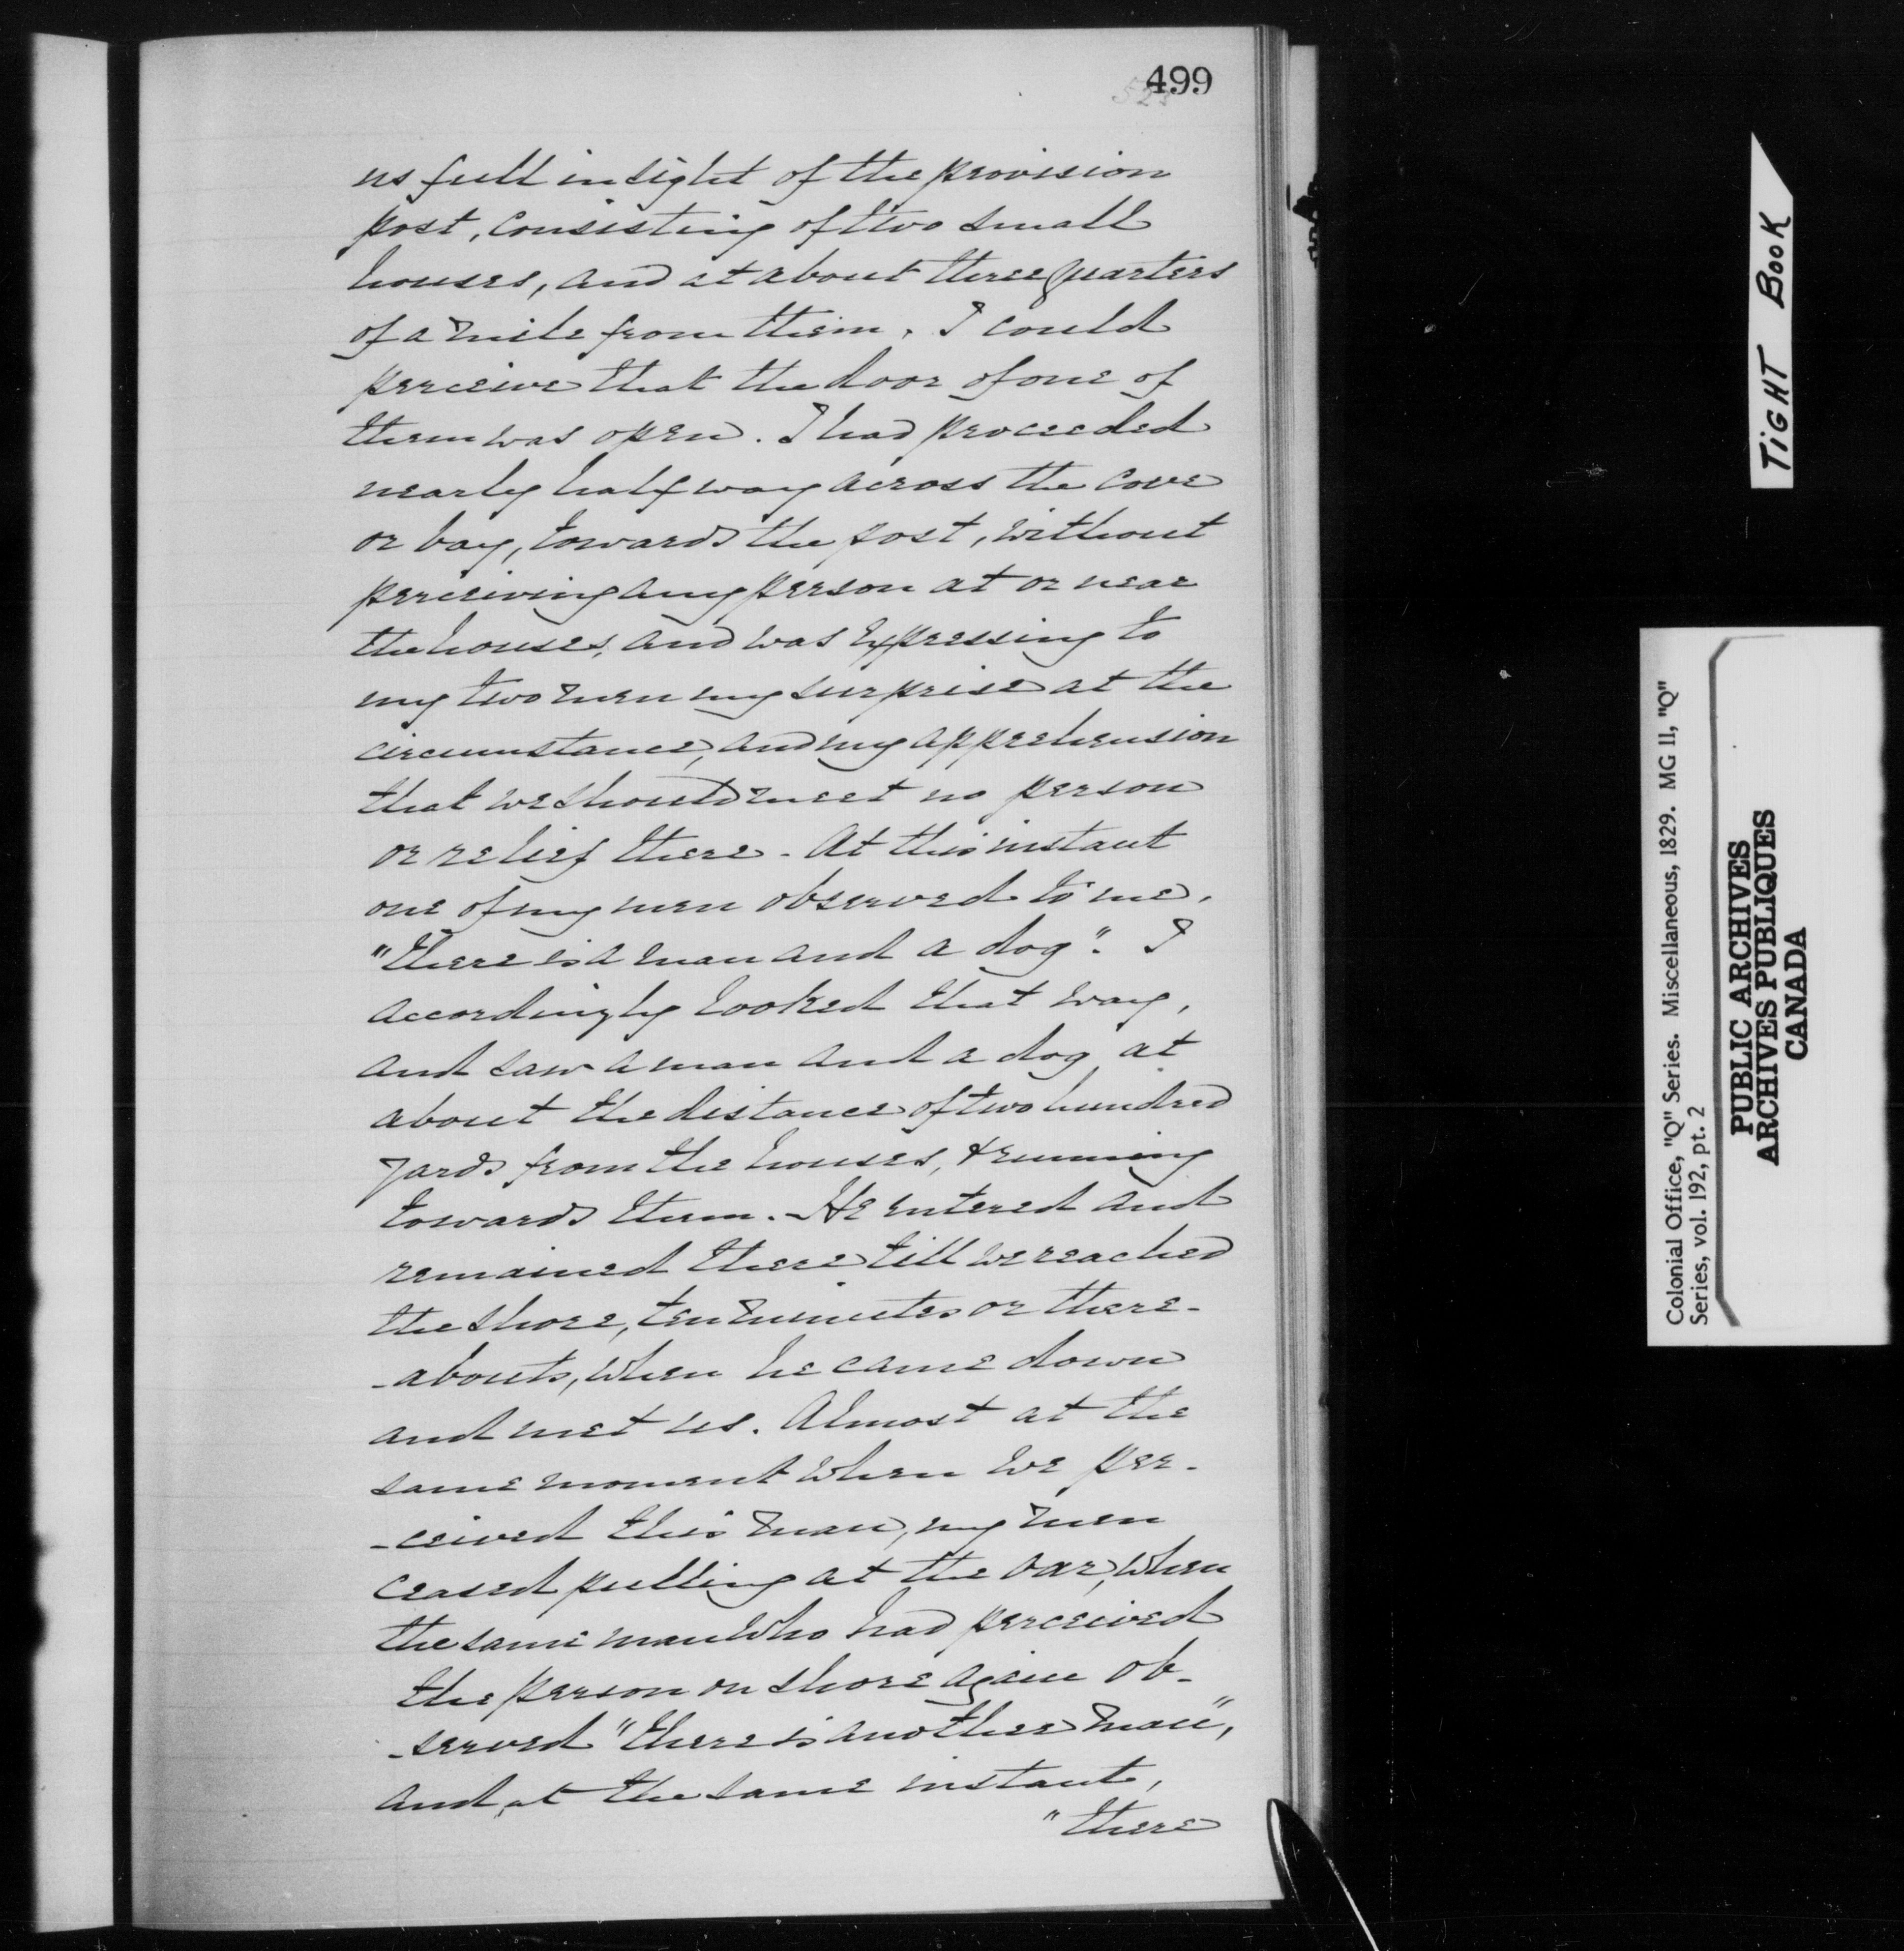 499
us full in sight of the provision
post, consisting of two small
houses, and at about three quarters
of a mile from them. I could
perceive that the door of one of
them was open. I had proceeded
nearly half way across the cove
or bay, towards the post, without
perceiving any person at or near
the houses, and was expressing to
my two men my surprise at the
circumstance, and my apprehension
that we should meet no person
or relief there. At this instant
one of my men observed to me,
"there is a man and a dog". I
accordingly looked that way,
and saw a man and a dog at
about the distance of two hundred
yards from the houses, & running
towards them. - He entered and
remained there till we reached
the shore, ten minutes or there-
-abouts, when he came down
and met us. Almost at the
same moment when we per-
-ceived this man, my men
ceased pulling at the oar, when
the same man who had perceived
the person on shore again ob-
-served "there is another man",
and, at the same instant,
"there
TIGHT BOOK
Colonial Office, "Q" Series. Miscellaneous, 1829. MG 11, "Q"
Series, vol. 192, pt. 2
PUBLIC ARCHIVES
ARCHIVES PUBLIQUES
CANADA